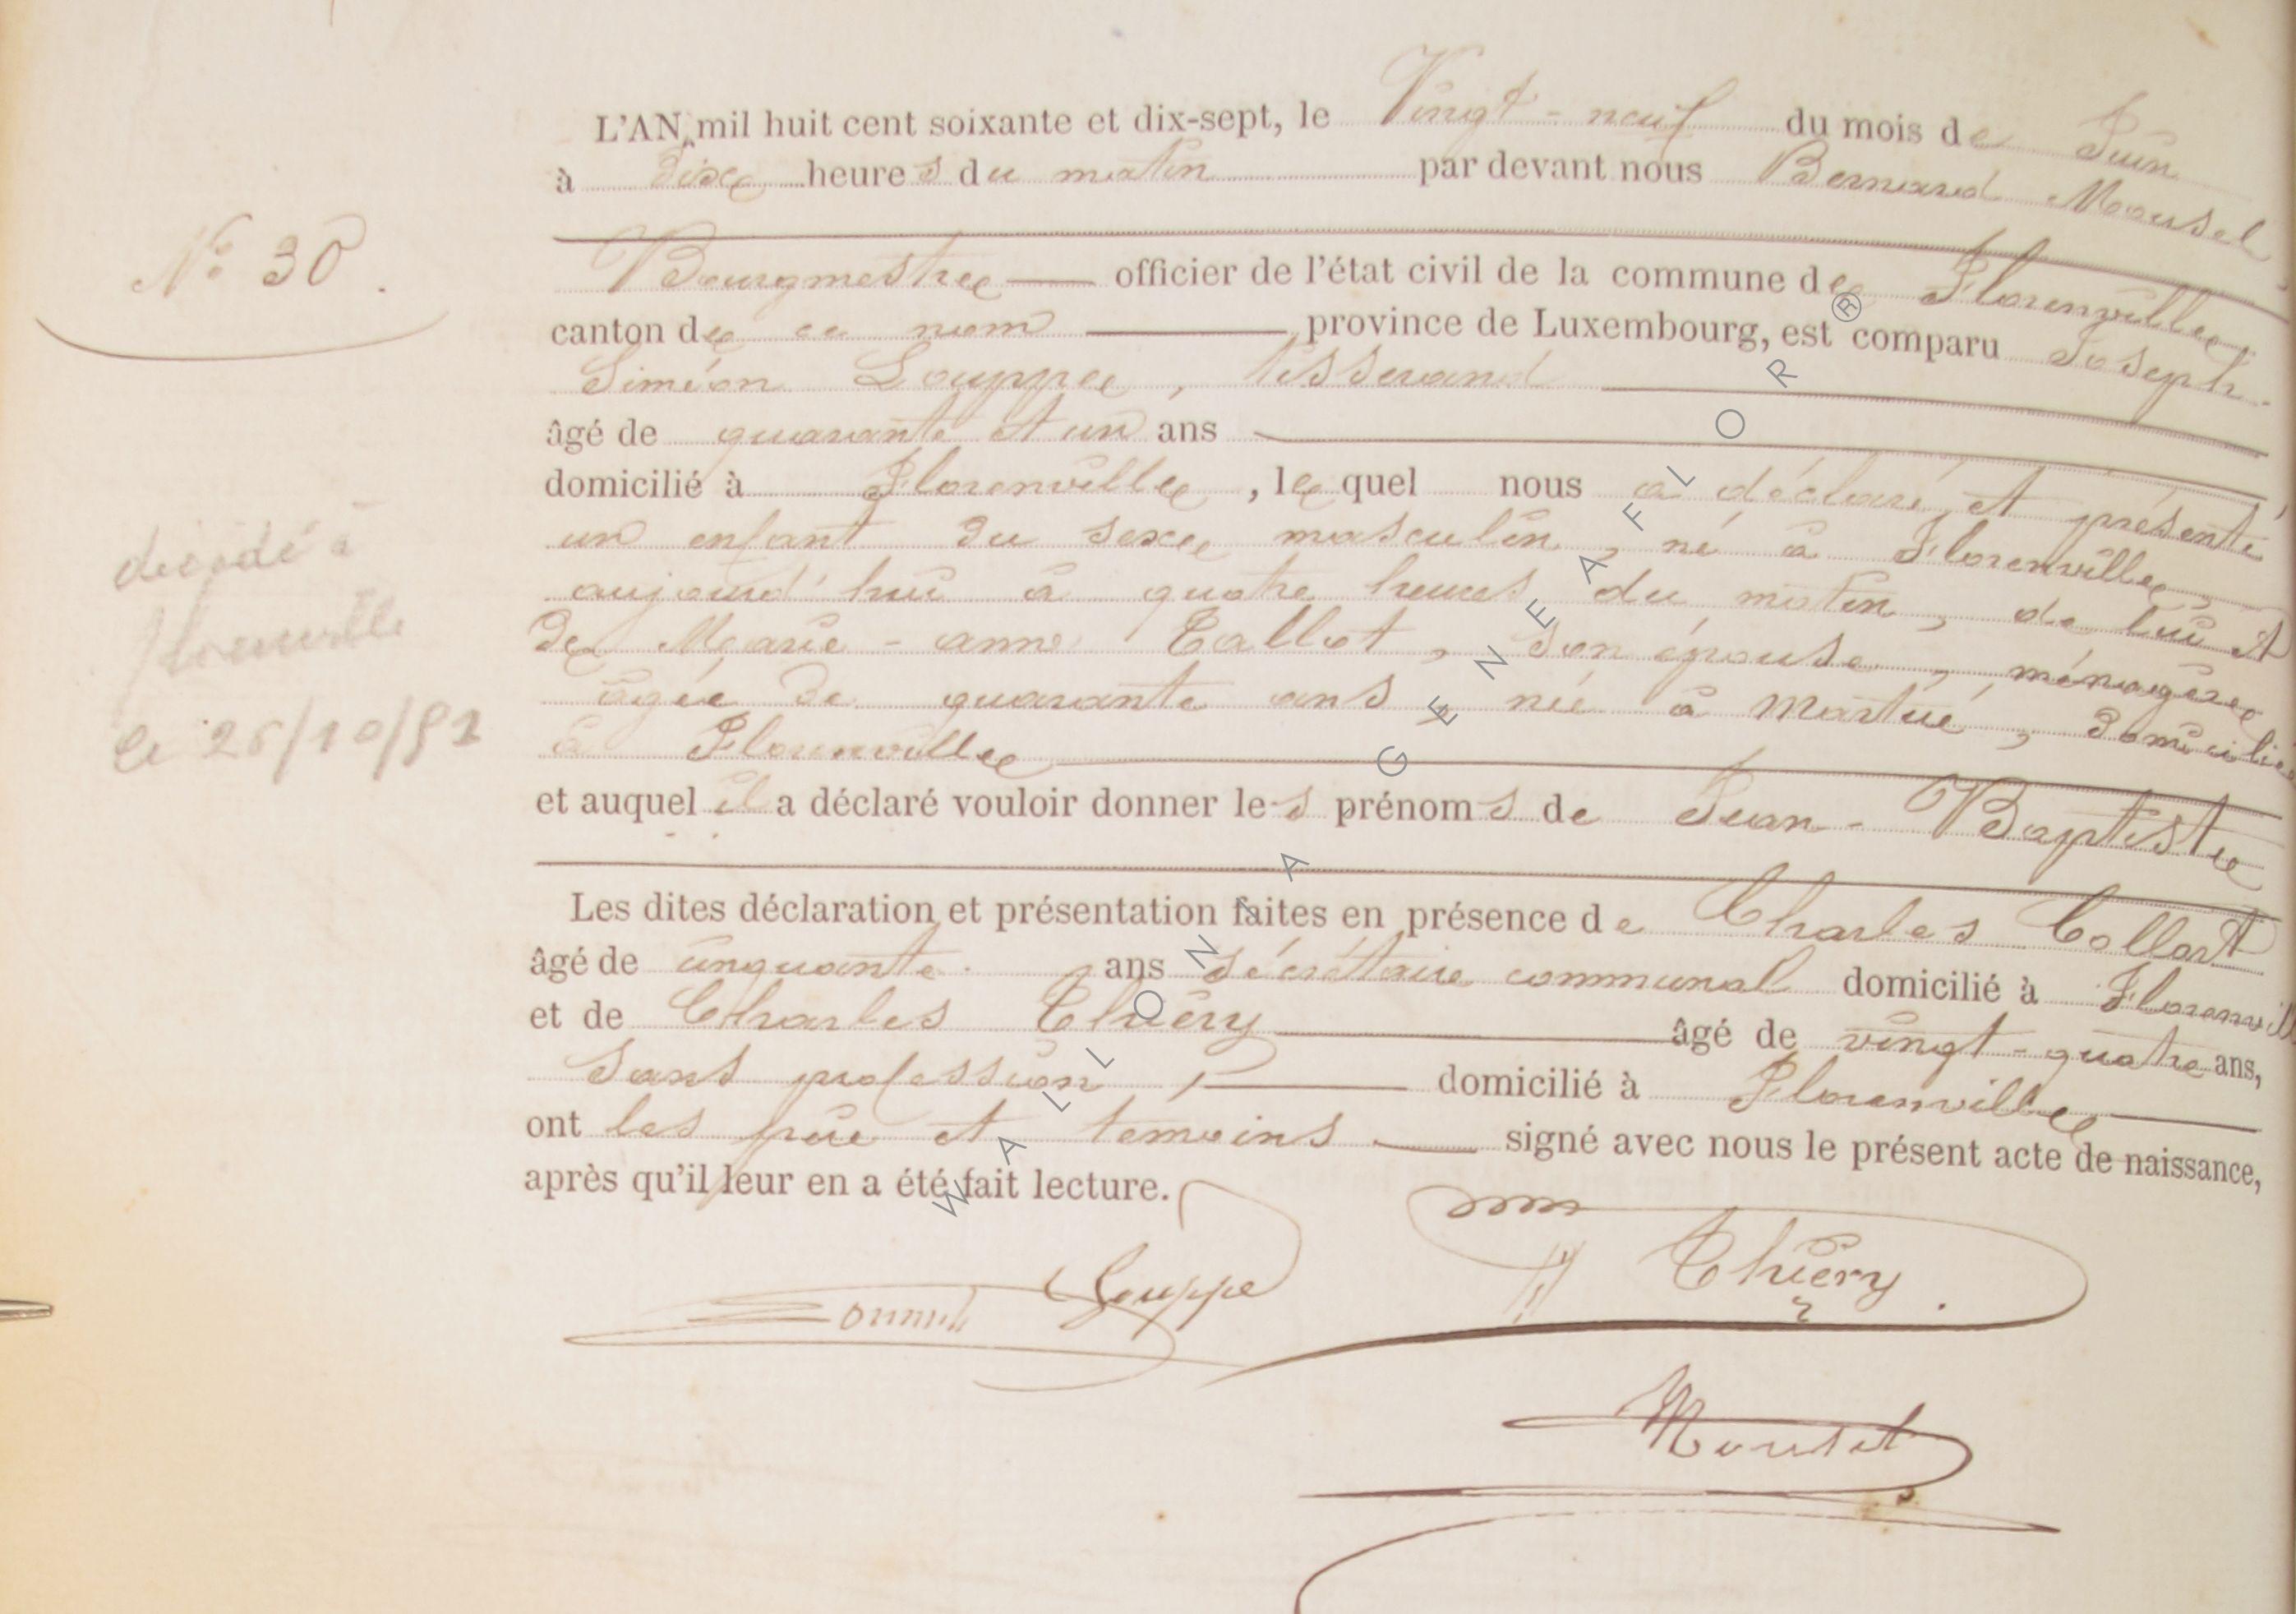 L'AN mil huit cent soixante et dix-sept, le Vingt-neuf du mois de Juin
à dixe heures du matin par devant nous Bernard Mousel
N° 30.
Bourgmestre officier de l'état civil de la commune de Florenville
canton de ce nom province de Luxembourg, est comparu Joseph
Siméon Louppe, tisserand
âgé de quarante et un ans
domicilié à Florenville, lequel nous a déclaré et présenté
un enfant du sexe masculin, né à Florenville,
aujourd'hui à quatre heures du matin, de lui et
de Marie-anne Tallot, son épouse, ménagère
âgée de quarante ans née à Martué, domiciliée
à Florenville
décédé à
florenville
le 25/10/51
et auquel il a déclaré vouloir donner les prénoms de Jean-Baptiste
Les dites déclaration et présentation faites en présence de Charles Collart
âgé de cinquante ans sécrétaire communal domicilié à Florenville
et de Charles Thiéry âgé de vingt-quatre ans,
sans profession, domicilié à Florenville
ont les père et temoins signé avec nous le présent acte de naissance,
après qu'il leur en a été fait lecture.
Louppe
Thiéry
Mousel
WALLONIA GENEAFLOR ®